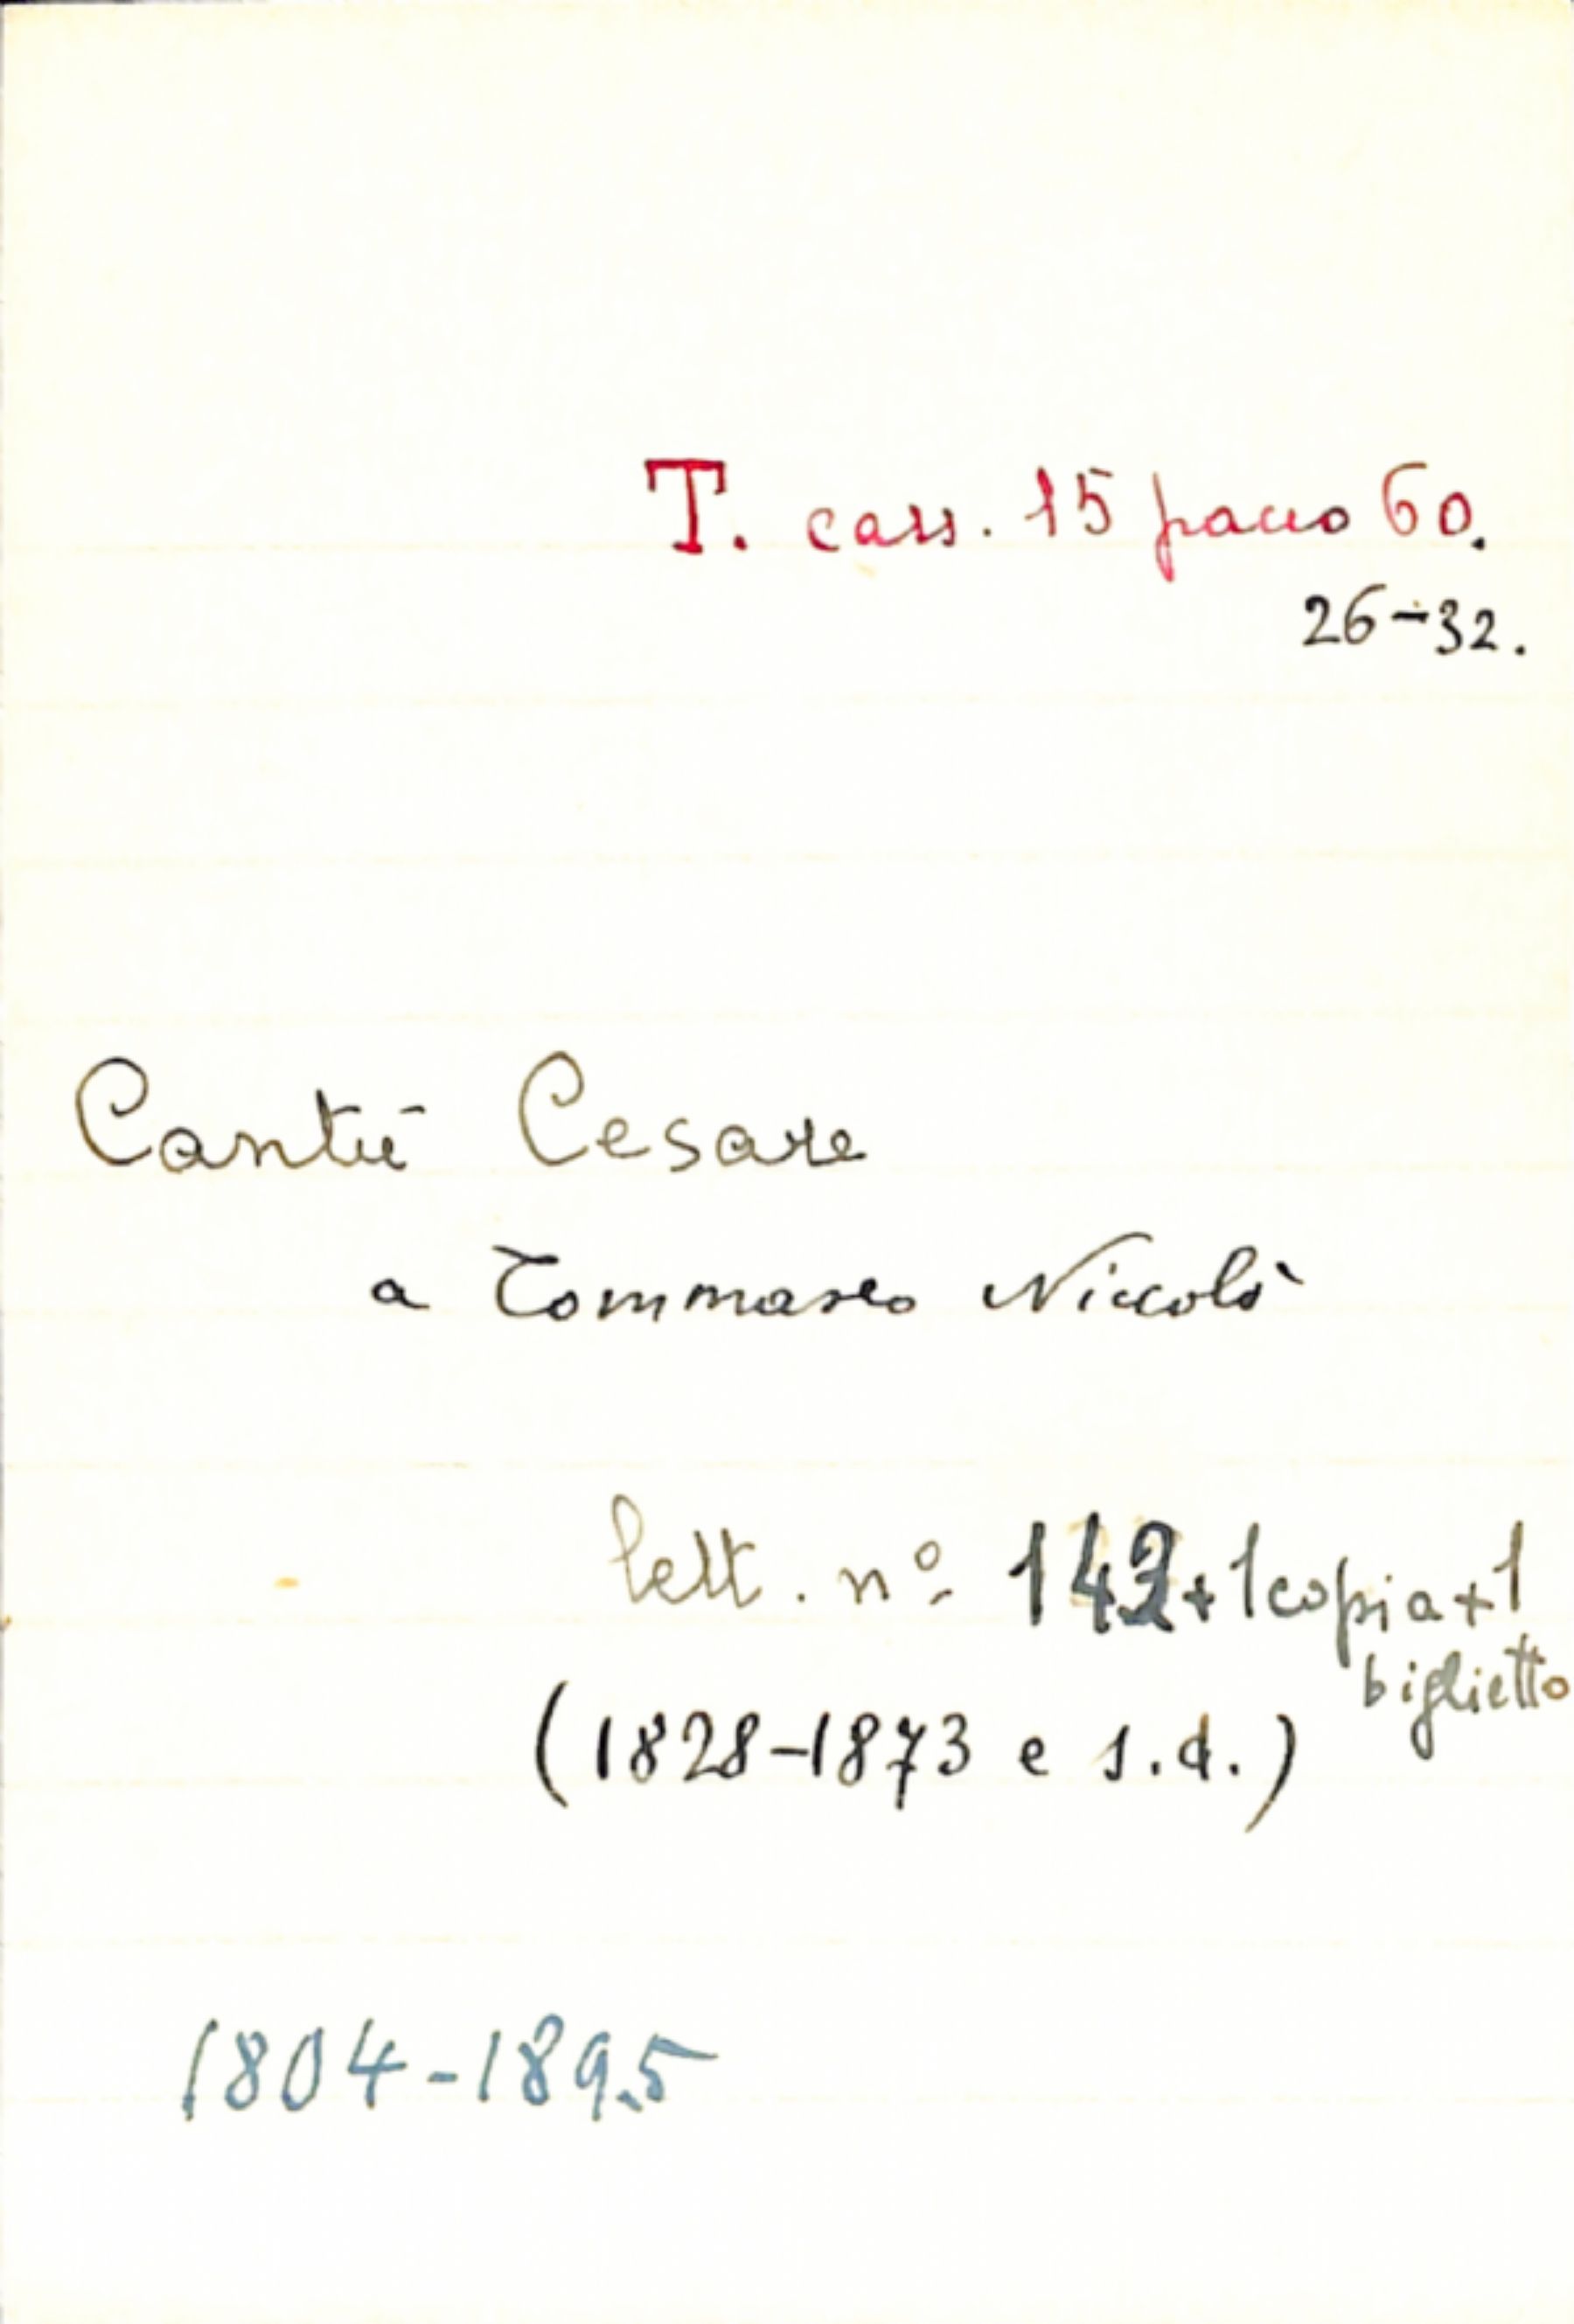 T. cass. 15 pacco 60.
26-32.
Cantù Cesare
a Tommaseo Niccolò
lett. nº 142+1 copia+1
biglietto
(1828-1873 e s.d.)
1804-1895